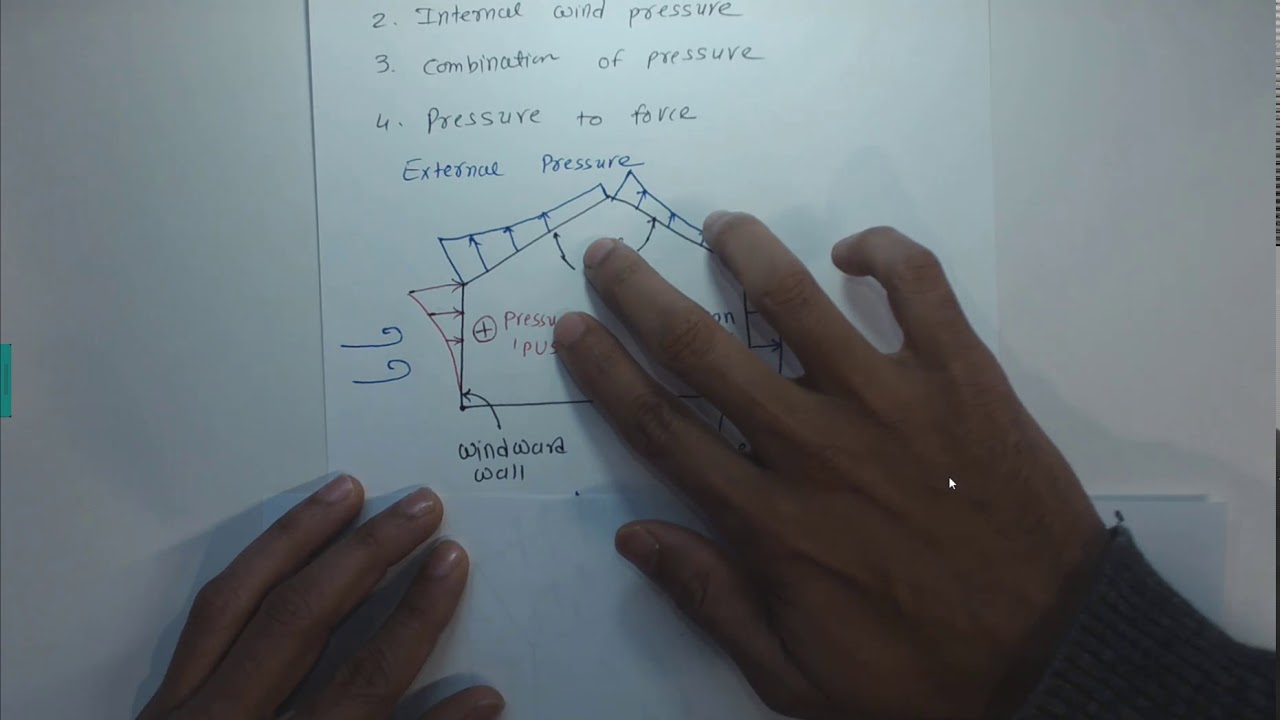 2. Internal wind pressure
3. Combination of pressure
4. Pressure to force
External Pressure
+ Pressu
'PUS
on
windward
wall